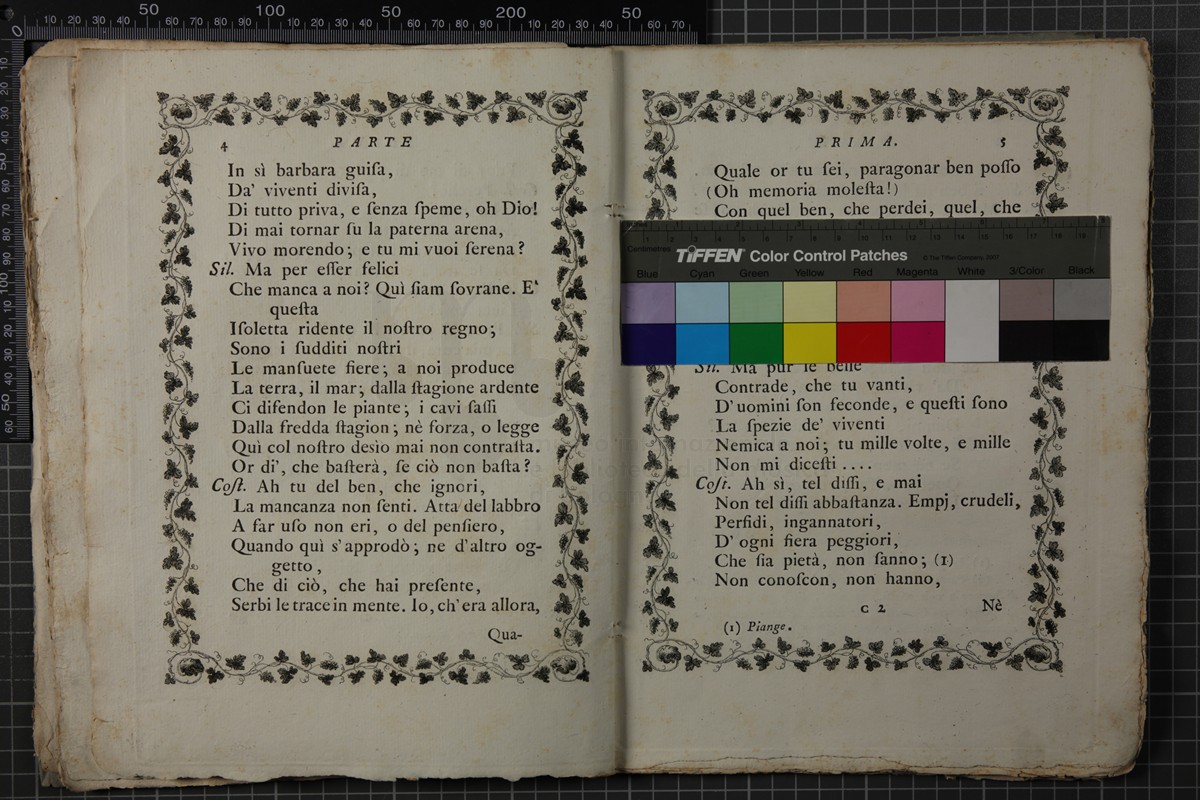 4 PARTE
In sì barbara guiſa,
Da' viventi diviſa,
Di tutto priva, e ſenza ſpeme, oh Dio!
Di mai tornar ſu la paterna arena,
Vivo morendo; e tu mi vuoi ſerena?
Sil. Ma per eſſer felici
Che manca a noi? Quì ſiam ſovrane. E'
queſta
Iſoletta ridente il noſtro regno;
Sono i ſudditi noſtri
Le manſuete fiere; a noi produce
La terra, il mar; dalla ſtagione ardente
Ci difendon le piante; i cavi ſaſſi
Dalla fredda ſtagion; nè forza, o legge
Quì col noſtro desìo mai non contraſta.
Or di', che baſterà, ſe ciò non baſta?
Coſt. Ah tu del ben, che ignori,
La mancanza non ſenti. Atta del labbro
A far uſo non eri, o del penſiero,
Quando quì s'approdò; ne d'altro og-
getto,
Che di ciò, che hai preſente,
Serbi le trace in mente. Io, ch'era allora,
Qua-
PRIMA. 5
Quale or tu ſei, paragonar ben poſſo
(Oh memoria moleſta!)
Con quel ben, che perdei, quel, che
Sil. Ma pur le belle
Contrade, che tu vanti,
D'uomini ſon feconde, e queſti ſono
La ſpezie de' viventi
Nemica a noi; tu mille volte, e mille
Non mi diceſti ....
Coſt. Ah sì, tel diſſi, e mai
Non tel diſſi abbaſtanza. Empj, crudeli,
Perfidi, ingannatori,
D'ogni fiera peggiori,
Che ſia pietà, non ſanno; (1)
Non conoſcon, non hanno,
C 2 Nè
(1) Piange.
0 10 20 30 40 50 60 70 80 90 100 10 20 30 40 50 60 70 80 90 200 10 20 30 40 50 60 70
Centimetres 1 2 3 4 5 6 7 8 9 10 11 12 13 14 15 16 17 18 19
TIFFEN Color Control Patches © The Tiffen Company, 2007
Blue Cyan Green Yellow Red Magenta White 3/Color Black